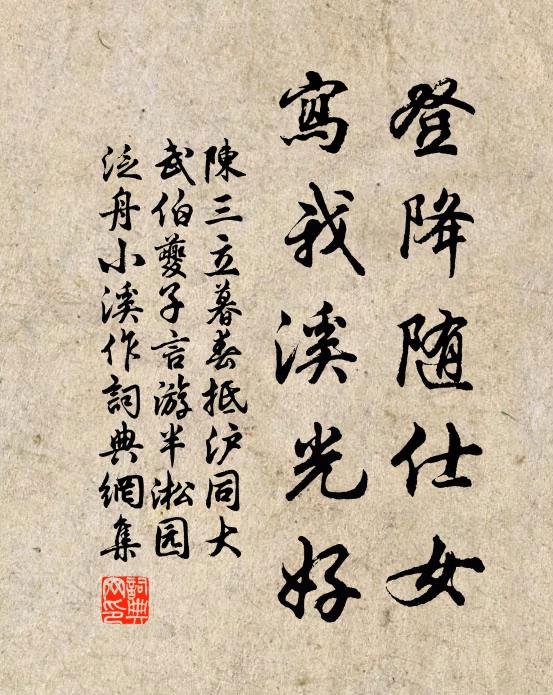 登降随仕女
寫我溪光好
陳三立暮春抵沪同大
武伯夔子言游半淞园
泛舟小溪作詞典網集
詞典网印